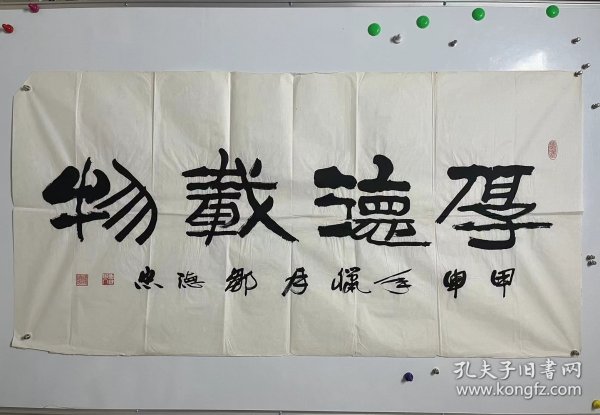 厚德載物
甲申年臘月鄒德忠
孔夫子旧书网
www.kongfz.com